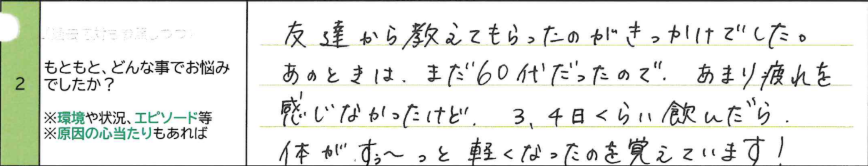 2
もともと、どんな事でお悩み
でしたか？
※環境や状況、エピソード等
※原因の心当たりもあれば
友達から教えてもらったのがきっかけでした。
あのときは、まだ60代だったので、あまり疲れを
感じなかったけど、3、4日くらい飲んだら、
体がすぅ〜っと軽くなったのを覚えています！